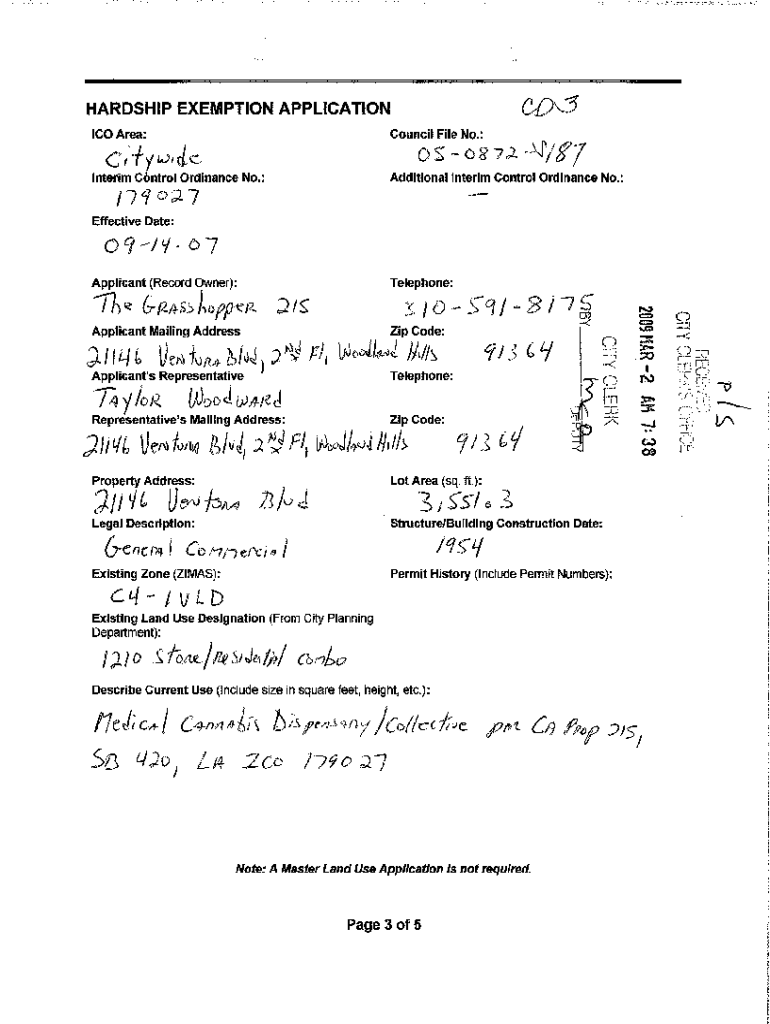 HARDSHIP EXEMPTION APPLICATION CD3
ICO Area: Council File No.:
Citywide 05-0872-S187
Interim Control Ordinance No.: Additional Interim Control Ordinance No.:
179027 —
Effective Date:
09-14-07
Applicant (Record Owner): Telephone:
The Grasshopper 215 310-591-8175
Applicant Mailing Address Zip Code:
21146 Ventura Blvd, 2nd Fl, Woodland Hills 91364
Applicant's Representative Telephone:
Taylor Woodward
Representative's Mailing Address: Zip Code:
21146 Ventura Blvd, 2nd Fl, Woodland Hills 91364
Property Address: Lot Area (sq. ft.):
21146 Ventura Blvd 3,551.3
Legal Description: Structure/Building Construction Date:
General Commercial 1954
Existing Zone (ZIMAS): Permit History (Include Permit Numbers):
C4-1VLD
Existing Land Use Designation (From City Planning
Department):
1210 Store/Residential combo
Describe Current Use (Include size in square feet, height, etc.):
Medical Cannabis Dispensary/Collective per CA Prop 215,
SB 420, LA ICO 179027
BY
DEPUTY
CITY CLERK
2009 MAR -2 AM 7:38
RECEIVED
CITY CLERK'S OFFICE
P/S
Note: A Master Land Use Application is not required.
Page 3 of 5